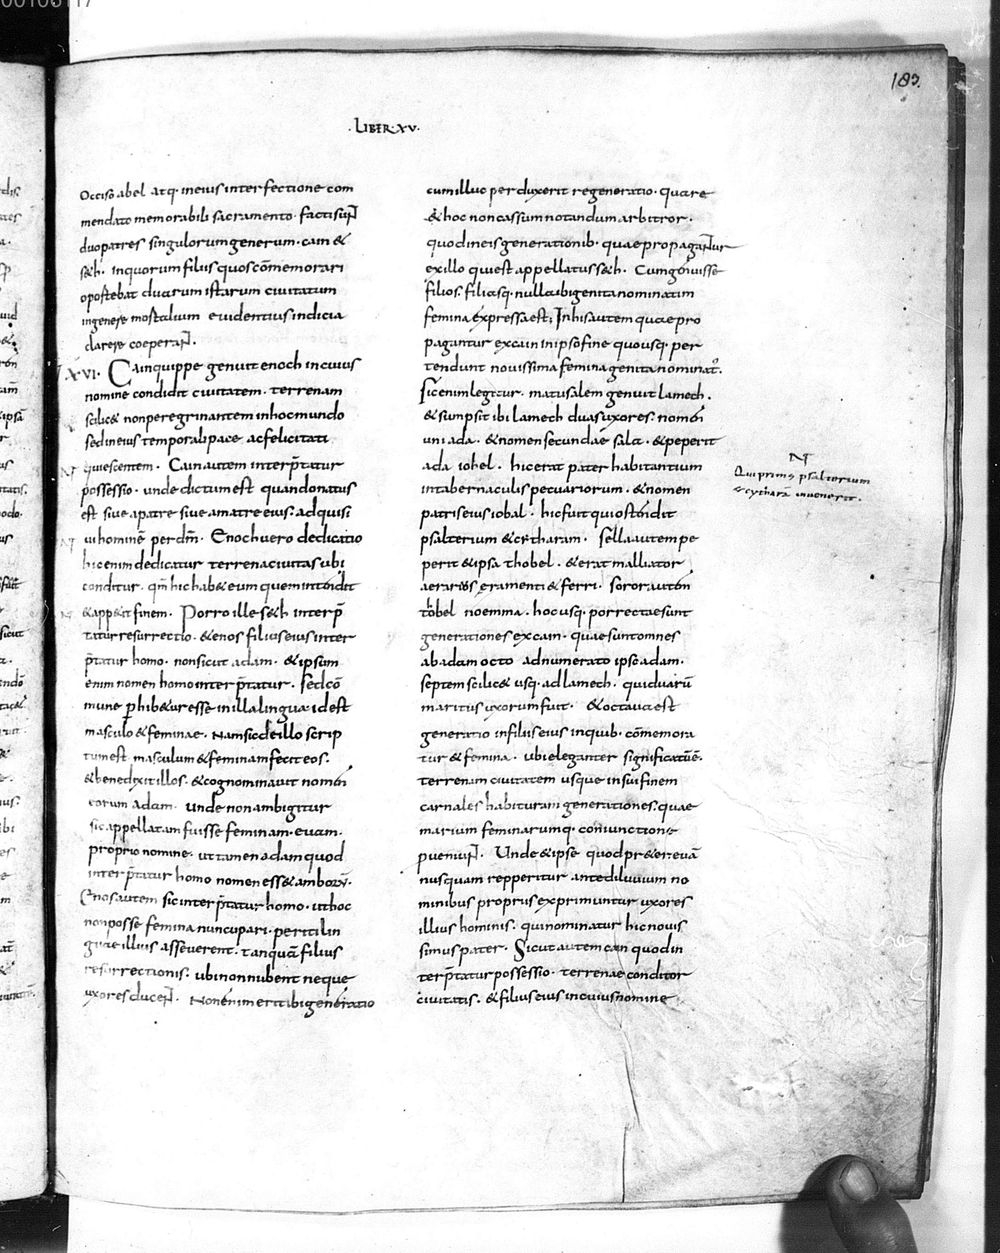 00106117
183.
·LIBER·XV·
Occiso abel atq· in eius interfectione com
mendato memorabili sacramento· facti sunt
duo patres singulorum generum· cain &
s&h· in quorum filiis quos cōmemorari
oportebat duarum istarum ciuitatum
in genere mortalium euidentius indicia
clarere coeperant·
XVI· Cain quippe genuit enoch in cuius
nomine condidit ciuitatem· terrenam
scilic& non peregrinantem in hoc mundo
sed in eius temporali pace ac felicitati
quiescentem· Cain autem interp̄tatur
possessio· unde dictum est quando natus
est siue a patre siue a matre eius· adquisi
ui hominē per dm̄· Enoch uero dedicatio
hic enim dedicatur terrena ciuitas ubi
conditur· qm̄ hic hab& eum quem intendit
& app&it finem· Porro ille s&h interp̄
tatur resurrectio· & enos filius eius inter
p̄tatur homo· non sicut adam· & ipsum
enim nomen homo interp̄tatur· sed cō
mune phib&ur esse in illa lingua· id est
masculo & feminae· Nam sic de illo scrip
tum est masculum & feminam fecit eos·
& benedixit illos· & cognominauit nomen
eorum adam· unde non ambigitur
sic appellatam fuisse feminam· euam·
proprio nomine· ut tamen adam quod
interp̄tatur homo nomen ess& amborum·
Enos autem sic interp̄tatur homo· ut hoc
non posse femina nuncupari· periti lin
guae illius asseuerent· tanquā filius
resurrectionis· ubi non nubent neque
uxores ducent· Non enim erit ibi generatio
cum illuc perduxerit regeneratio· quare
& hoc non cassum notandum arbitror·
quod in eis generationib· quae propagantur
ex illo qui est appellatus s&h· Cum genuisse
filios· filiasq· nulla ibi genita nominatim
femina expressa est; In his autem quae pro
pagantur ex cain in ipso fine quousq· per
tendunt nouissima femina genita nominat·
Sic enim legitur· matusalem genuit lamech·
& sumpsit ibi lamech duas uxores· nomen
uni ada· & nomen secundae sala· & peperit
ada iobel· hic erat pater habitantium
in tabernaculis pecuariorum· & nomen
patris eius iobal· hic fuit qui ostendit
psalterium & citharam· Sella autem pe
perit & ipsa thobel· & erat malliator
aerarius eramenti & ferri· soror autem
tobel noemma· hocusq· porrectae sunt
generationes ex cain· quae sunt omnes
ab adam octo adnumerato ipso adam·
septem scilic& usq· ad lamech· qui duarū
maritus uxorum fuit· & octaua est
generatio in filiis eius in quib· cōmemora
tur & femina· ubi eleganter significatū ē·
terrenam ciuitatem usque in sui finem
carnales habituram generationes· quae
marium feminarumq· coniunctione
proueniunt· Unde & ipse quod pr&er euā
nusquam repperitur ante diluuium no
minibus propriis exprimuntur uxores
illius hominis· qui nominatur hic nouis
simus pater· Sicut autem cain quod in
terp̄tatur possessio· terrenae conditor
ciuitatis· & filius eius in cuius nomine
Qui primus psalterium
& cythara inuenerit·